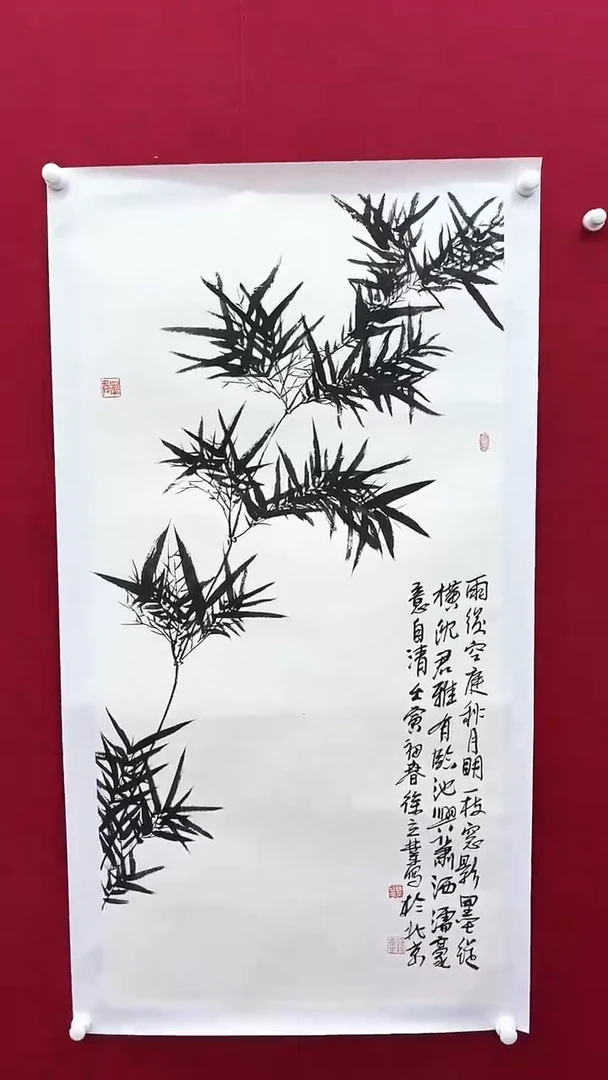 雨後空庭秋月明一枝窓影墨縱
橫沈君雅有臨池興蕭洒濡毫
意自清壬寅初春徐立業写於北京